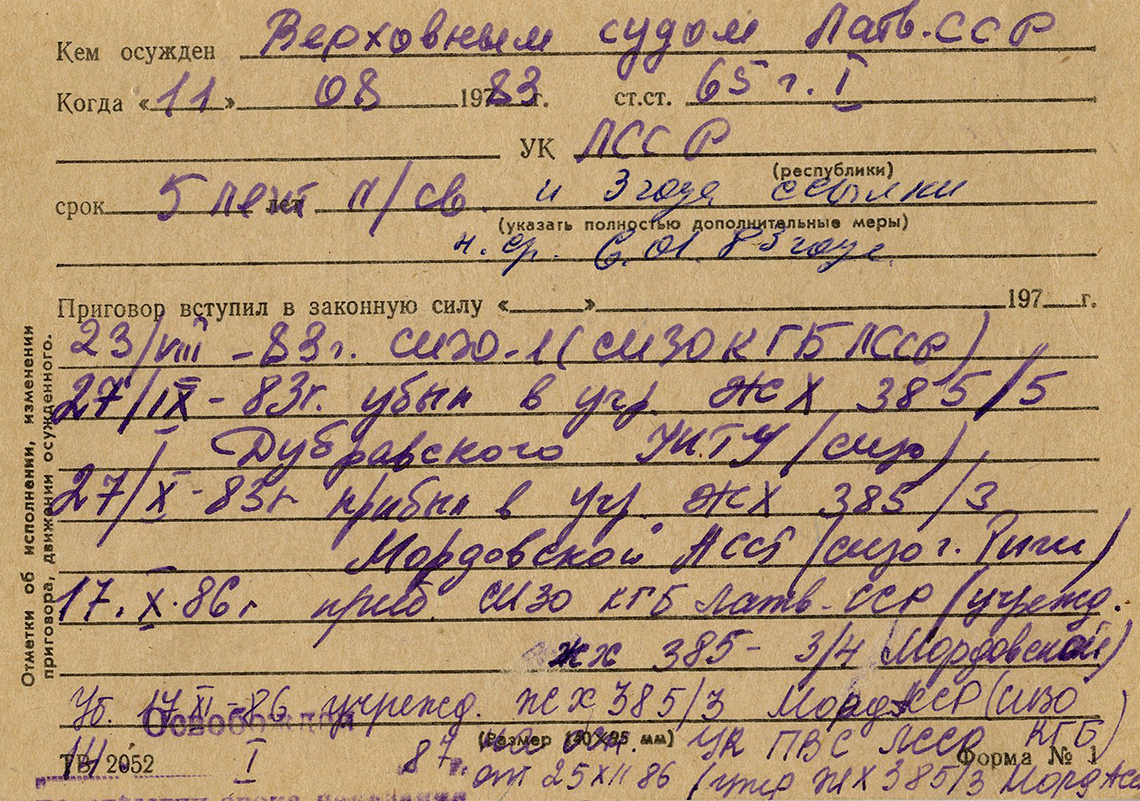 Кем осужден Верховным судом Латв. ССР
Когда «11» 08 1983 г. ст.ст. 65 г. I
УК ЛССР
(республики)
срок 5 лет лет п/св. и 3 года ссылки
(указать полностью дополнительные меры)
н. ср. 6.01.83 года
Приговор вступил в законную силу «    » 197  г.
23/VIII - 83г. СИЗО-1 (СИЗО КГБ ЛССР)
27/IX - 83г. убыл в учр. ЖХ 385/5
Дубравского УИТУ (сизо)
27/X - 83г прибыл в учр. ЖХ 385/3
Мордовской АССР (сизо г. Риги)
17.X.86г приб. СИЗО КГБ Латв. ССР (учрежд.
ЖХ 385 - 3/4 Мордовской)
Уб. 17 XI - 86 учрежд. ЖХ 385/3 Морд АССР (СИЗО
КГБ)
Освобожден
(Размер 140×95 мм)
УК ПВС ЛССР
ТБ 2052 14. I 87г. Форма № 1
от 25 XII 86 ЖХ 385/3 Морд АСС
Отметки об исполнении, изменении
приговора, движении осужденного.